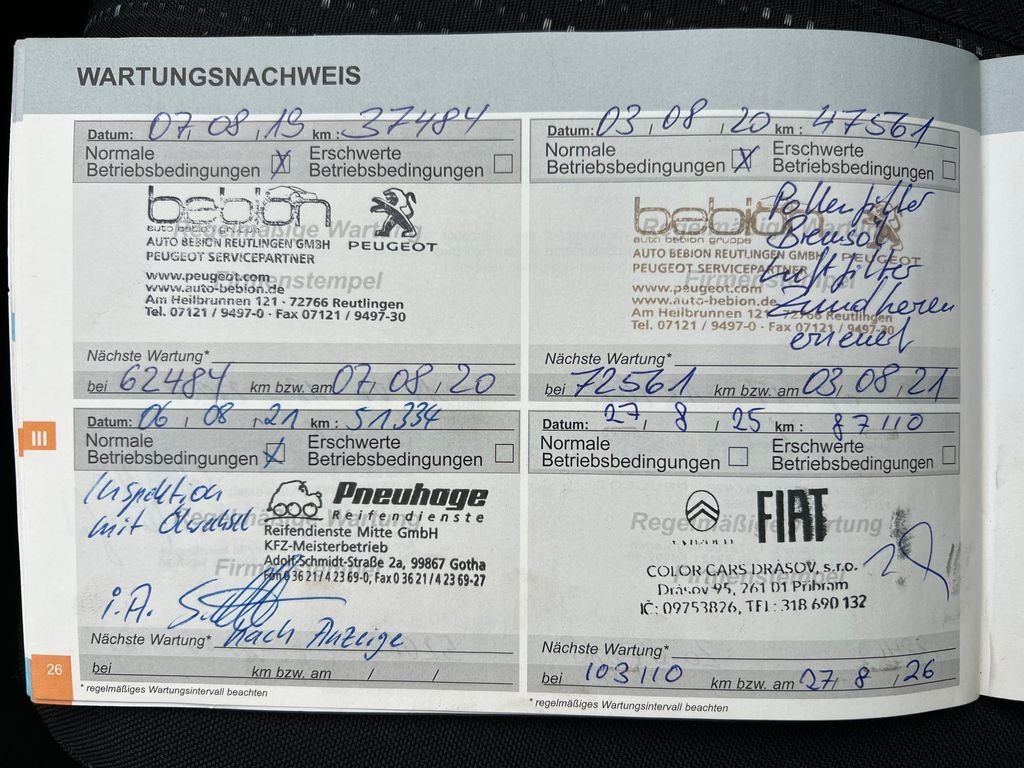 WARTUNGSNACHWEIS
Datum: 07 / 08 / 19 km : 37484
Normale Betriebsbedingungen X Erschwerte Betriebsbedingungen
bebion
auto bebion gruppe
AUTO BEBION REUTLINGEN GMBH PEUGEOT
PEUGEOT SERVICEPARTNER
Regelmäßige Wartung
Firmenstempel
www.peugeot.com
www.auto-bebion.de
Am Heilbrunnen 121 · 72766 Reutlingen
Tel. 07121 / 9497-0 · Fax 07121 / 9497-30
Nächste Wartung*
bei 62484 km bzw. am 07 / 08 / 20
Datum: 03 / 08 / 20 km : 47561
Normale Betriebsbedingungen X Erschwerte Betriebsbedingungen
bebion
auto bebion gruppe
AUTO BEBION REUTLINGEN GMBH PEUGEOT
PEUGEOT SERVICEPARTNER
Regelmäßige Wartung
Firmenstempel
www.peugeot.com
www.auto-bebion.de
Am Heilbrunnen 121 · 72766 Reutlingen
Tel. 07121 / 9497-0 · Fax 07121 / 9497-30
Pollenfilter
Bremsöl
Luftfilter
Zündkerzen
erneuert
Nächste Wartung*
bei 72561 km bzw. am 03 / 08 / 21
Datum: 06 / 08 / 21 km : 51.334
Normale Betriebsbedingungen X Erschwerte Betriebsbedingungen
Inspektion
mit Ölwechsel
Regelmäßige Wartung
Firmenstempel
Pneuhage
Reifendienste
Reifendienste Mitte GmbH
KFZ-Meisterbetrieb
Adolf-Schmidt-Straße 2a, 99867 Gotha
Fon 0 36 21 / 4 23 69-0, Fax 0 36 21 / 4 23 69-27
i.A.
Nächste Wartung* nach Anzeige
bei km bzw. am / /
* regelmäßiges Wartungsintervall beachten
Datum: 27 / 8 / 25 km : 87110
Normale Betriebsbedingungen Erschwerte Betriebsbedingungen
FIAT
Regelmäßige Wartung
Firmenstempel
COLOR CARS DRÁSOV, s.r.o.
Drásov 95, 261 01 Příbram
IČ: 09753826, TEL: 318 690 132
Nächste Wartung*
bei 103110 km bzw. am 27 / 8 / 26
* regelmäßiges Wartungsintervall beachten
III
26